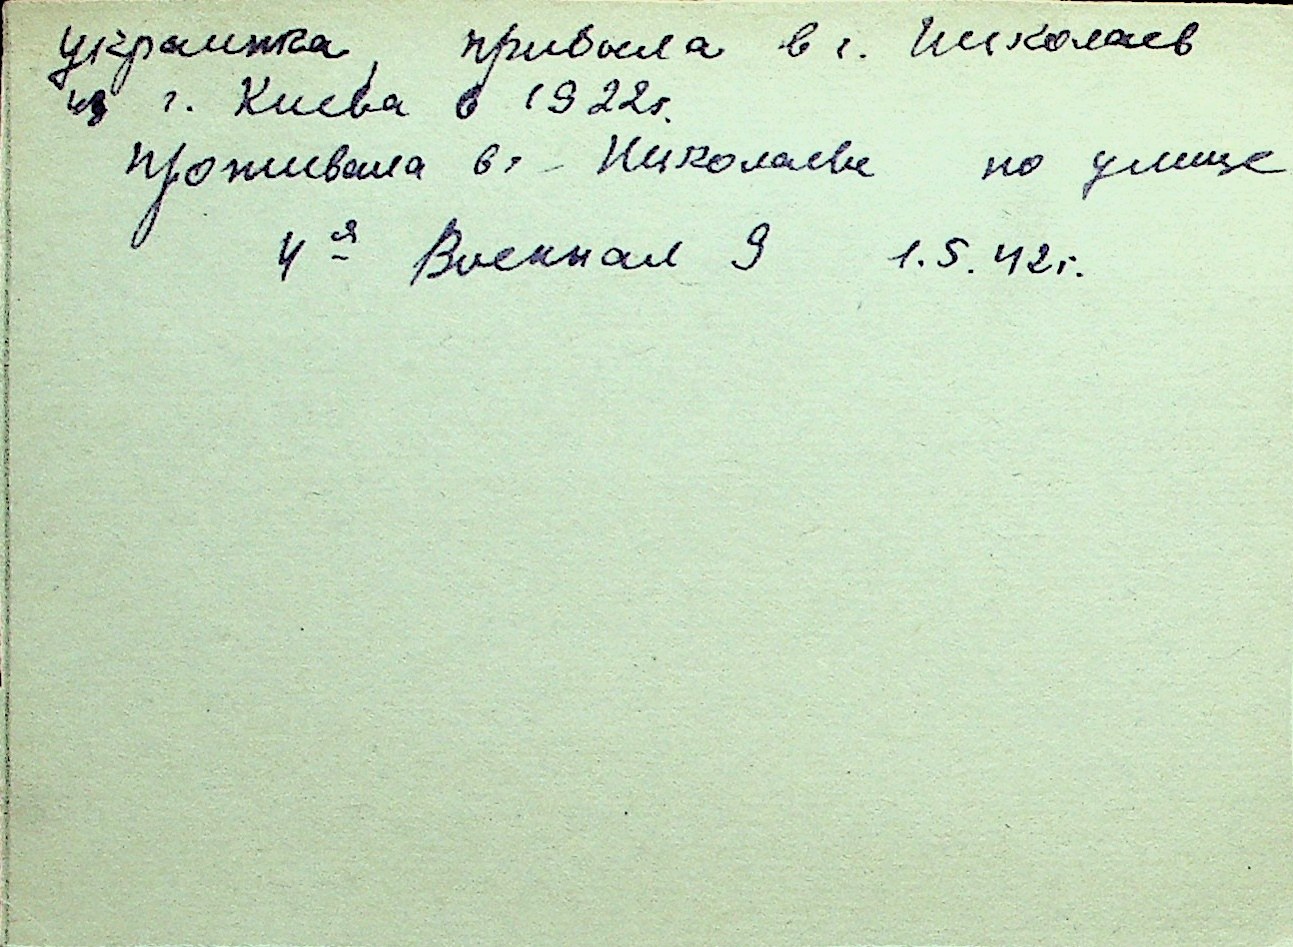 украинка, прибыла в г. Николаев
из г. Киева в 1922г.
проживала в г. Николаеве по улице
4я Военная 9 1.5.42г.